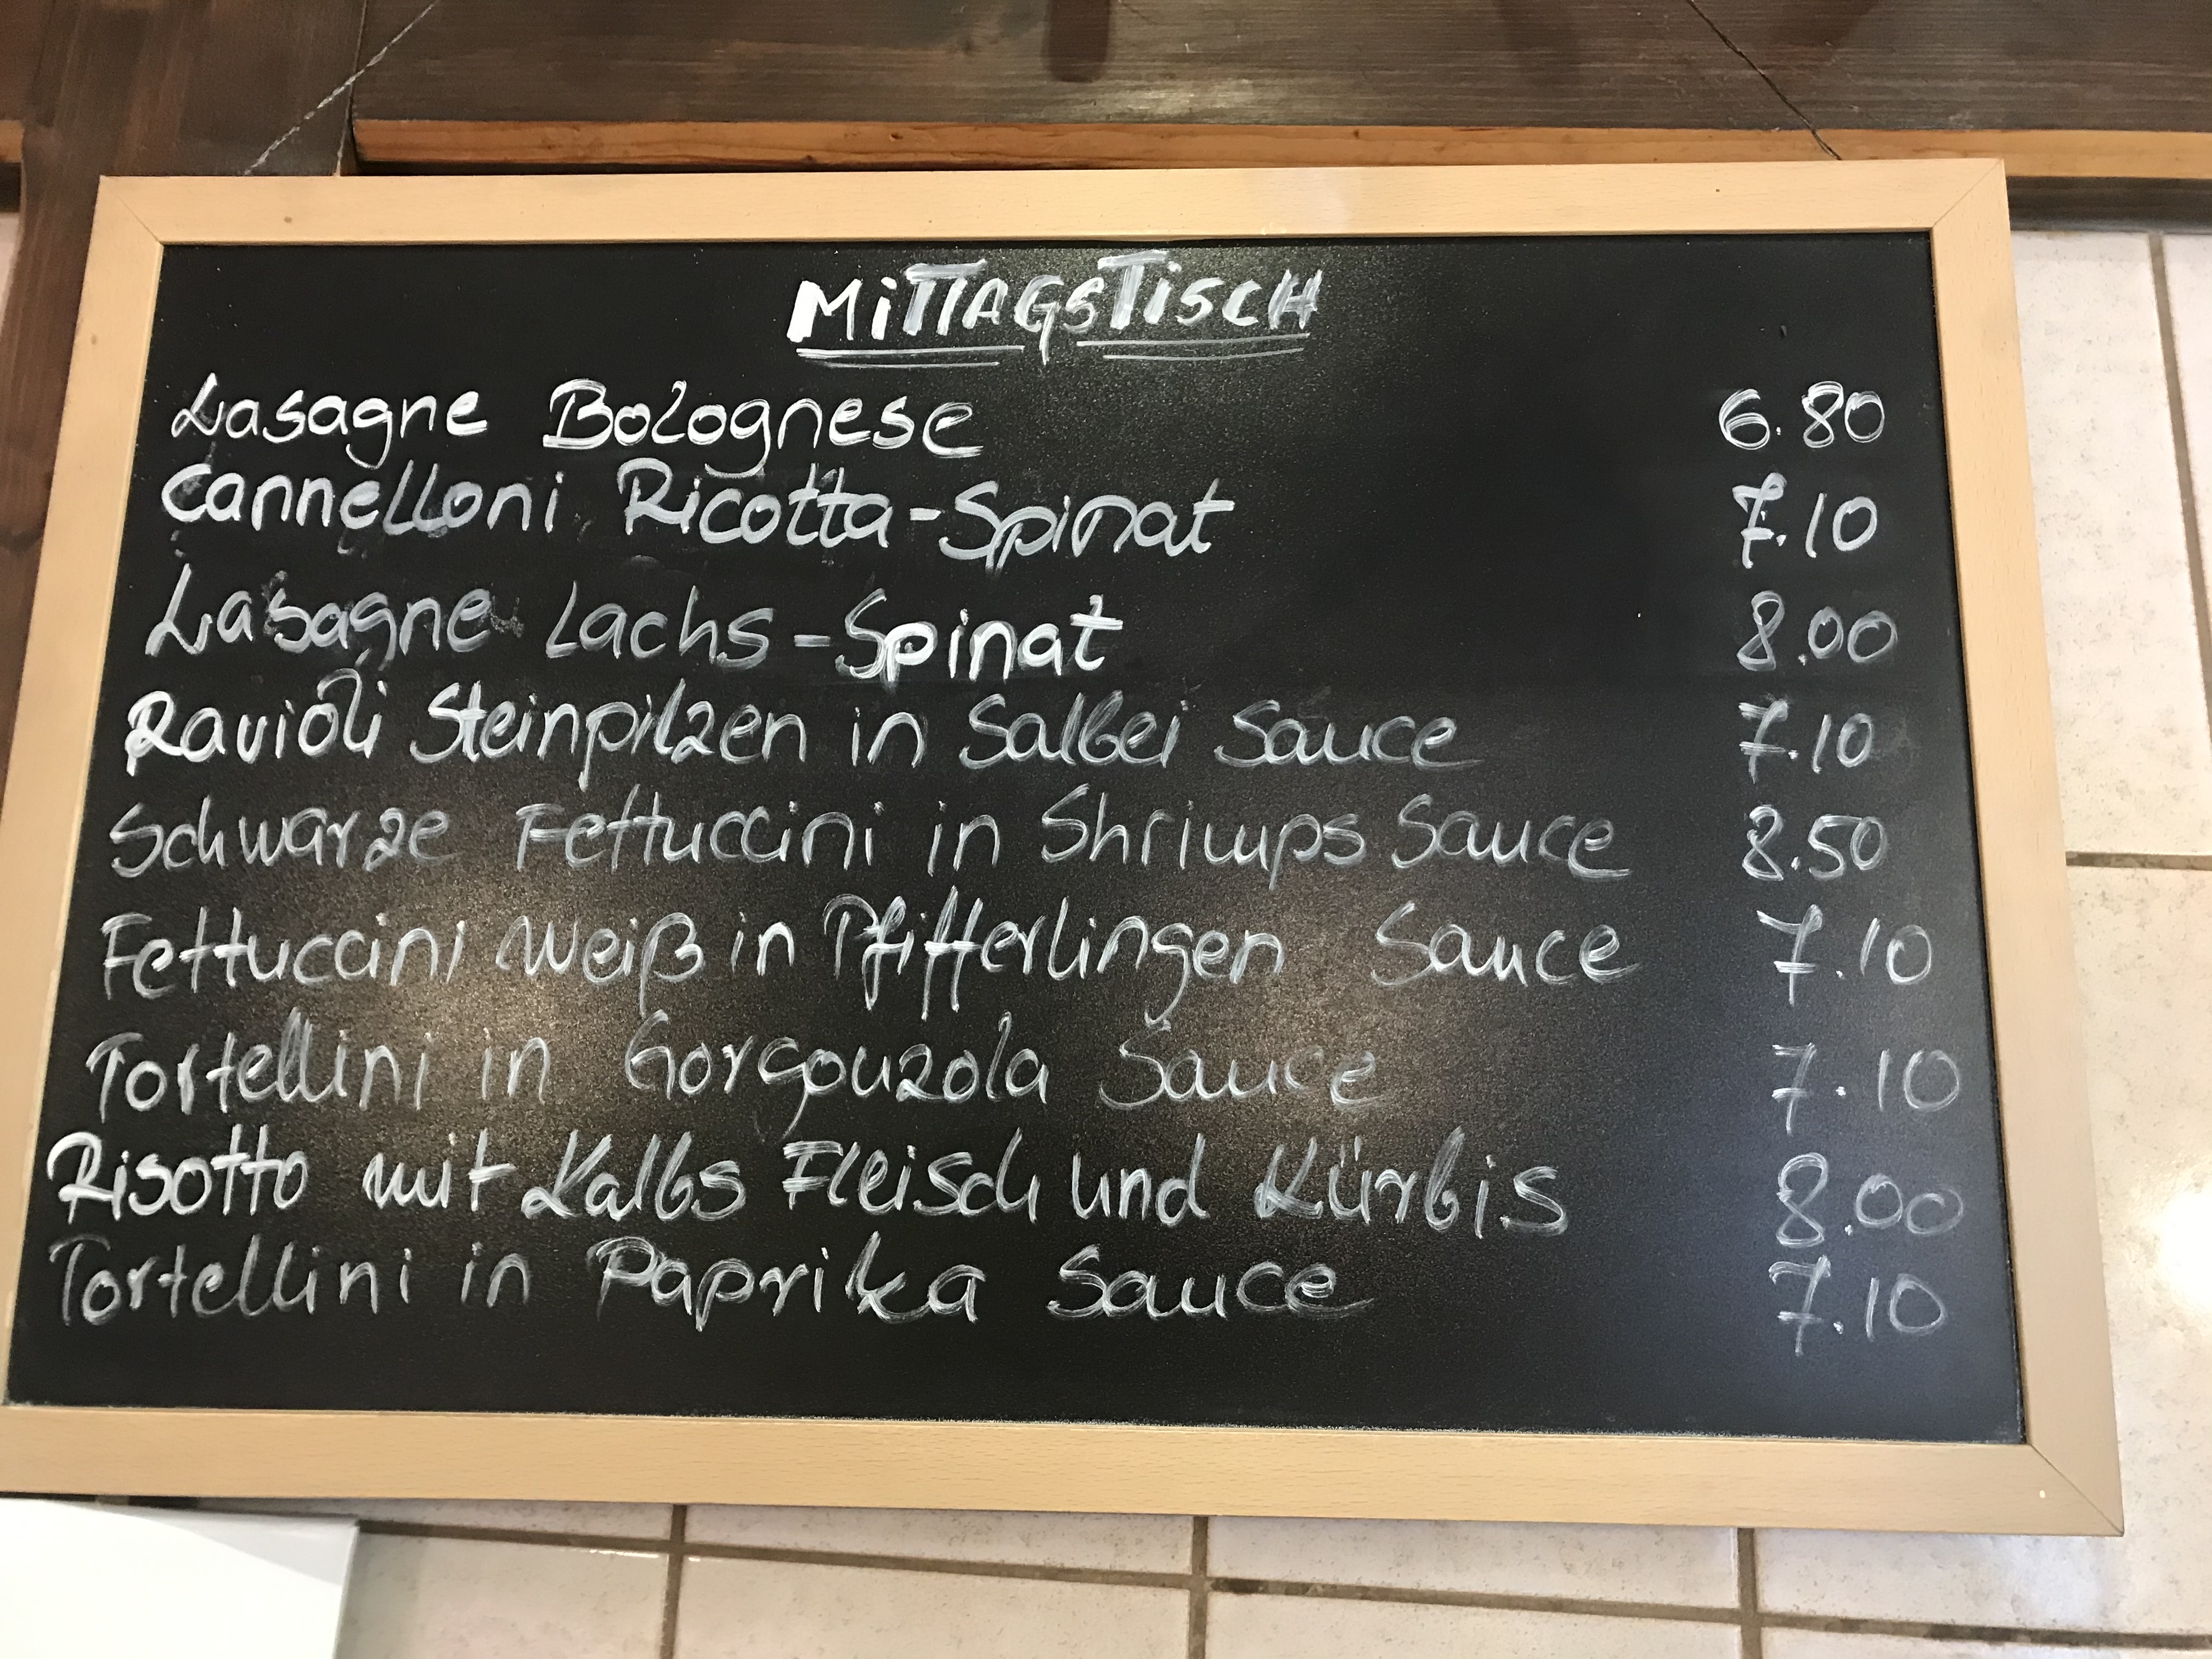 MiTTAGSTiSCH
Lasagne Bolognese 6.80
Cannelloni Ricotta-Spinat 7.10
Lasagne Lachs-Spinat 8.00
Ravioli Steinpilzen in Salbei Sauce 7.10
Schwarze Fettuccini in Shrimps Sauce 8.50
Fettuccini Weiß in Pfifferlingen Sauce 7.10
Tortellini in Gorgonzola Sauce 7.10
Risotto mit Kalbs Fleisch und Kürbis 8.00
Tortellini in Paprika Sauce 7.10